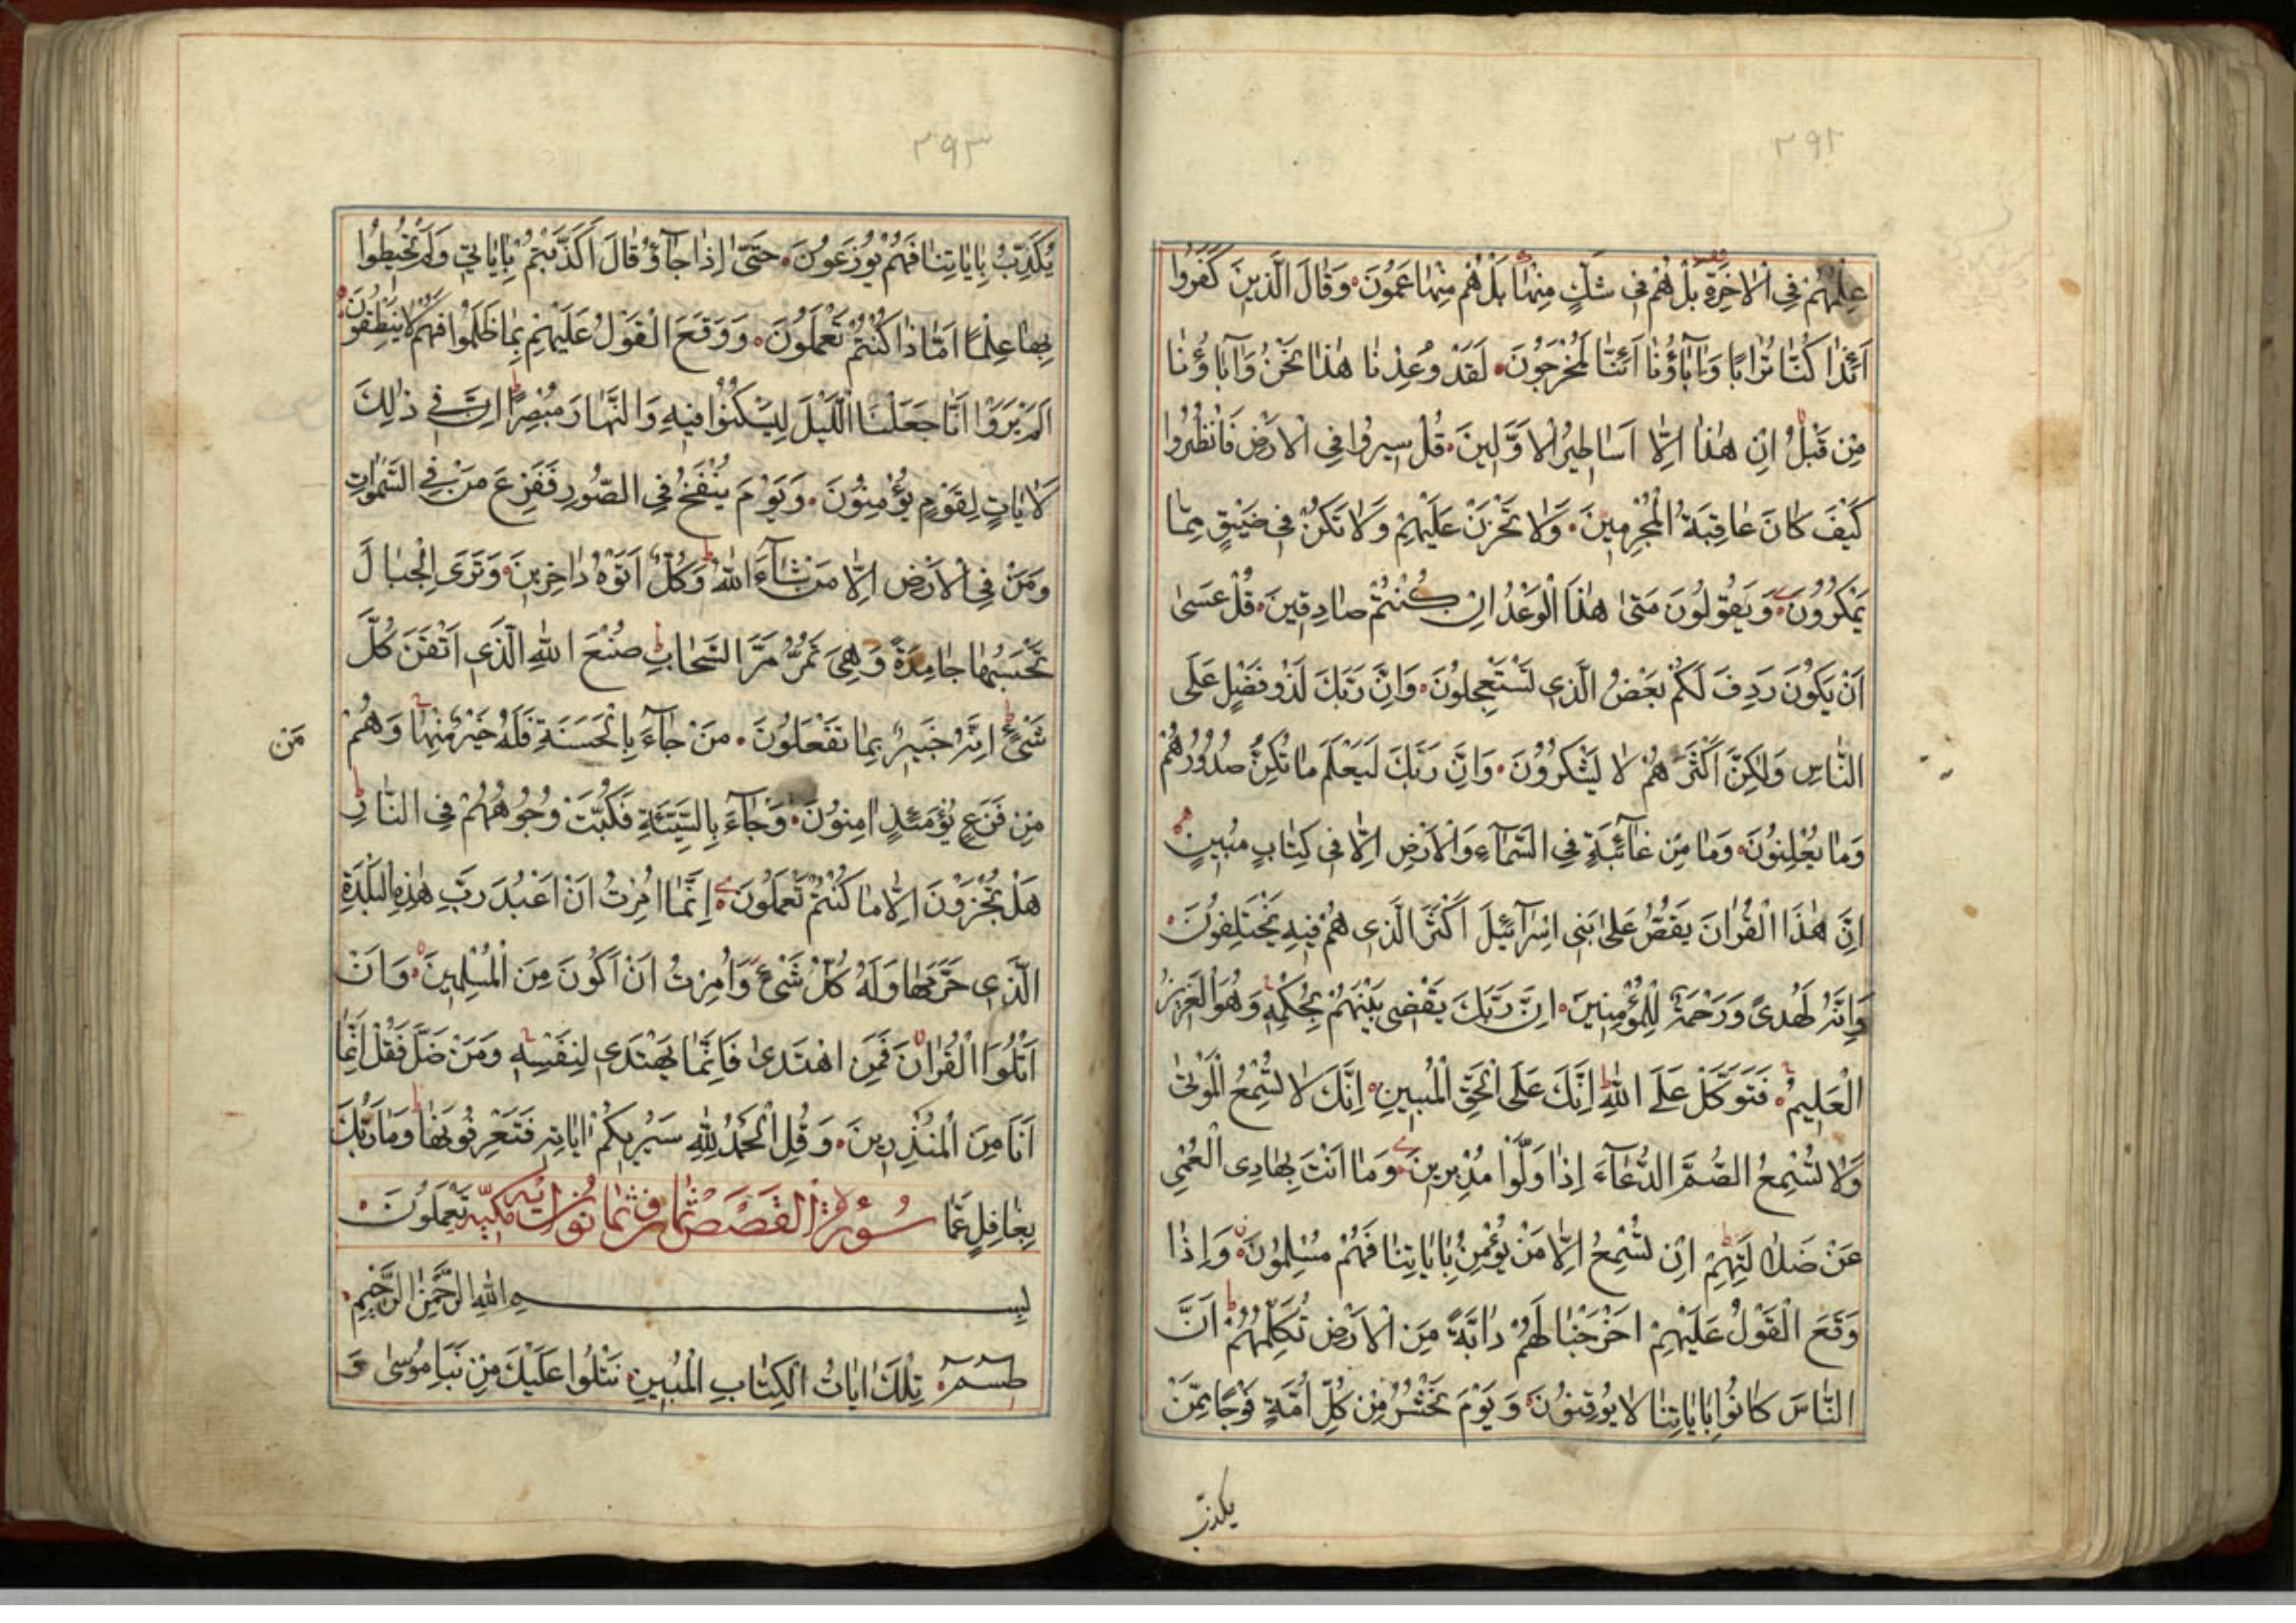 ٣٩٢
عِلْمُهُمْ فِى الْاٰخِرَةِ بَلْ هُمْ فِى شَكٍّ مِنْهَا بَلْ هُمْ مِنْهَا عَمُونَ وَقَالَ الَّذِينَ كَفَرُوا
اَئِذَا كُنَّا تُرَابًا وَاٰبَاؤُنَا اَئِنَّا لَمُخْرَجُونَ لَقَدْ وُعِدْنَا هٰذَا نَحْنُ وَاٰبَاؤُنَا
مِنْ قَبْلُ اِنْ هٰذَا اِلَّا اَسَاطِيرُ الْاَوَّلِينَ قُلْ سِيرُوا فِى الْاَرْضِ فَانْظُرُوا
كَيْفَ كَانَ عَاقِبَةُ الْمُجْرِمِينَ وَلَا تَحْزَنْ عَلَيْهِمْ وَلَا تَكُنْ فِى ضَيْقٍ مِمَّا
يَمْكُرُونَ وَيَقُولُونَ مَتٰى هٰذَا الْوَعْدُ اِنْ كُنْتُمْ صَادِقِينَ قُلْ عَسٰى
اَنْ يَكُونَ رَدِفَ لَكُمْ بَعْضُ الَّذِى تَسْتَعْجِلُونَ وَاِنَّ رَبَّكَ لَذُو فَضْلٍ عَلَى
النَّاسِ وَلٰكِنَّ اَكْثَرَهُمْ لَا يَشْكُرُونَ وَاِنَّ رَبَّكَ لَيَعْلَمُ مَا تُكِنُّ صُدُورُهُمْ
وَمَا يُعْلِنُونَ وَمَا مِنْ غَآئِبَةٍ فِى السَّمَآءِ وَالْاَرْضِ اِلَّا فِى كِتَابٍ مُبِينٍ
اِنَّ هٰذَا الْقُرْاٰنَ يَقُصُّ عَلٰى بَنِى اِسْرَآئِيلَ اَكْثَرَ الَّذِى هُمْ فِيهِ يَخْتَلِفُونَ
وَاِنَّهُ لَهُدًى وَرَحْمَةٌ لِلْمُؤْمِنِينَ اِنَّ رَبَّكَ يَقْضِى بَيْنَهُمْ بِحُكْمِهِ وَهُوَ الْعَزِيزُ
الْعَلِيمُ فَتَوَكَّلْ عَلَى اللّٰهِ اِنَّكَ عَلَى الْحَقِّ الْمُبِينِ اِنَّكَ لَا تُسْمِعُ الْمَوْتٰى
وَلَا تُسْمِعُ الصُّمَّ الدُّعَآءَ اِذَا وَلَّوْا مُدْبِرِينَ وَمَا اَنْتَ بِهَادِى الْعُمْىِ
عَنْ ضَلَالَتِهِمْ اِنْ تُسْمِعُ اِلَّا مَنْ يُؤْمِنُ بِاٰيَاتِنَا فَهُمْ مُسْلِمُونَ وَاِذَا
وَقَعَ الْقَوْلُ عَلَيْهِمْ اَخْرَجْنَا لَهُمْ دَابَّةً مِنَ الْاَرْضِ تُكَلِّمُهُمْ اَنَّ
النَّاسَ كَانُوا بِاٰيَاتِنَا لَا يُوقِنُونَ وَيَوْمَ نَحْشُرُ مِنْ كُلِّ اُمَّةٍ فَوْجًا مِمَّنْ
يكذب
٣٩٣
يُكَذِّبُ بِاٰيَاتِنَا فَهُمْ يُوزَعُونَ حَتّٰى اِذَا جَآؤُ قَالَ اَكَذَّبْتُمْ بِاٰيَاتِى وَلَمْ تُحِيطُوا
بِهَا عِلْمًا اَمَّا ذَا كُنْتُمْ تَعْمَلُونَ وَوَقَعَ الْقَوْلُ عَلَيْهِمْ بِمَا ظَلَمُوا فَهُمْ لَا يَنْطِقُونَ
اَلَمْ يَرَوْا اَنَّا جَعَلْنَا الَّيْلَ لِيَسْكُنُوا فِيهِ وَالنَّهَارَ مُبْصِرًا اِنَّ فِى ذٰلِكَ
لَاٰيَاتٍ لِقَوْمٍ يُؤْمِنُونَ وَيَوْمَ يُنْفَخُ فِى الصُّورِ فَفَزِعَ مَنْ فِى السَّمٰوَاتِ
وَمَنْ فِى الْاَرْضِ اِلَّا مَنْ شَآءَ اللّٰهُ وَكُلٌّ اَتَوْهُ دَاخِرِينَ وَتَرَى الْجِبَالَ
تَحْسَبُهَا جَامِدَةً وَهِىَ تَمُرُّ مَرَّ السَّحَابِ صُنْعَ اللّٰهِ الَّذِى اَتْقَنَ كُلَّ
شَىْءٍ اِنَّهُ خَبِيرٌ بِمَا تَفْعَلُونَ مَنْ جَآءَ بِالْحَسَنَةِ فَلَهُ خَيْرٌ مِنْهَا وَهُمْ
مِنْ فَزَعٍ يَوْمَئِذٍ اٰمِنُونَ وَجَآءَ بِالسَّيِّئَةِ فَكُبَّتْ وُجُوهُهُمْ فِى النَّارِ
مَنْ
هَلْ تُجْزَوْنَ اِلَّا مَا كُنْتُمْ تَعْمَلُونَ اِنَّمَا اُمِرْتُ اَنْ اَعْبُدَ رَبَّ هٰذِهِ الْبَلْدَةِ
الَّذِى حَرَّمَهَا وَلَهُ كُلُّ شَىْءٍ وَاُمِرْتُ اَنْ اَكُونَ مِنَ الْمُسْلِمِينَ وَاَنْ
اَتْلُوَا الْقُرْاٰنَ فَمَنِ اهْتَدٰى فَاِنَّمَا يَهْتَدِى لِنَفْسِهِ وَمَنْ ضَلَّ فَقُلْ اِنَّمَا
اَنَا مِنَ الْمُنْذِرِينَ وَقُلِ الْحَمْدُ لِلّٰهِ سَيُرِيكُمْ اٰيَاتِهِ فَتَعْرِفُونَهَا وَمَا رَبُّكَ
بِغَافِلٍ عَمَّا سُورَةُ الْقَصَصِ ثَمَانٍ وَثَمَانُونَ اٰيَة مَكِّيَّة تَعْمَلُونَ
بِسْمِ اللّٰهِ الرَّحْمٰنِ الرَّحِيمِ
طسٓمٓ تِلْكَ اٰيَاتُ الْكِتَابِ الْمُبِينِ نَتْلُوا عَلَيْكَ مِنْ نَبَاِ مُوسٰى وَ